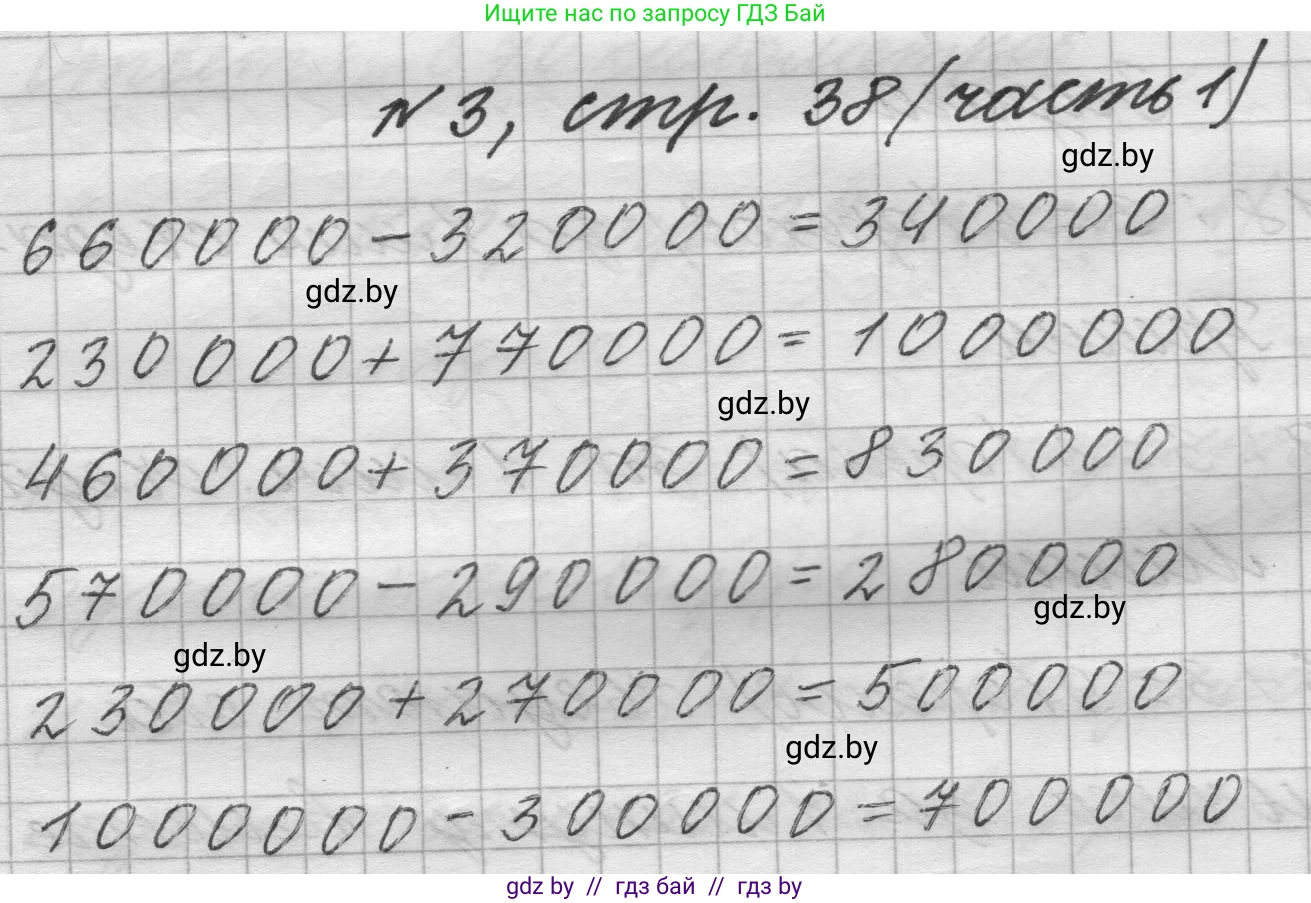 Ищите нас по запросу ГДЗ Бай
№ 3, стр. 38 (часть 1)
gdz.by
660000 - 320000 = 340000
gdz.by
230000 + 770000 = 1000000
gdz.by
460000 + 370000 = 830000
570000 - 290000 = 280000
gdz.by
gdz.by
230000 + 270000 = 500000
gdz.by
1000000 - 300000 = 700000
gdz by // гдз бай // гдз by